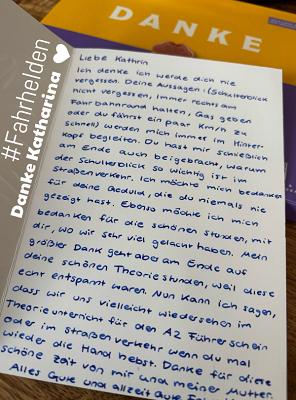 DANKE
#Fahrhelden
Danke Katharina
Liebe Kathrin
Ich denke ich werde dich nie
vergessen. Deine Aussagen: (Schulterblick
nicht vergessen, Immer rechts am
Fahrbahnrand halten, Gas geben
oder du fährst ein paar Km/h zu
schnell) werden mich immer im Hinter-
kopf begleiten. Du hast mir schließlich
am Ende auch beigebracht, warum
der Schulterblick so wichtig ist im
Straßenverkehr. Ich möchte mich bedanken
für deine Geduld, die du niemals nie
gezeigt hast. Ebenso möchte ich mich
bedanken für die schönen Stunden, mit
dir, wo wir sehr viel gelacht haben. Mein
größter Dank geht aber am Ende auf
deine schönen Theoriestunden, weil diese
echt entspannt waren. Nun kann ich sagen,
dass wir uns vielleicht wiedersehen im
Theorieunterricht für den A2 Führerschein
oder im Straßenverkehr wenn du mal
wieder die Hand hebst. Danke für diese
schöne Zeit von mir und meiner Mutter.
Alles Gute und allzeit Gute